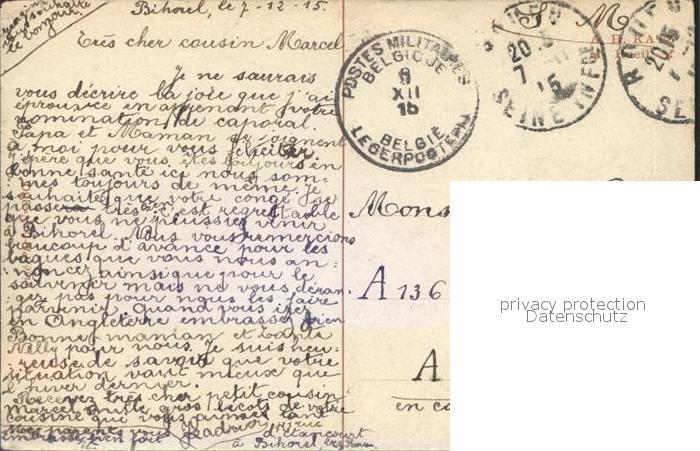 Bihorel, le 7-12-15.
Très cher cousin Marcel
Je ne saurais
vous décrire la joie que j'ai
éprouvée en apprenant votre
nomination de caporal.
Papa et Maman se joignent
à moi pour vous féliciter.
J'espère que vous êtes toujours en
bonne santé ici nous som-
mes toujours de même. Je
souhaite que votre congé se
passera très bien c'est regrettable
que vous ne puissiez venir
à Bihorel. Nous vous remercions
beaucoup d'avance pour les
bagues que vous nous an-
noncez ainsi que pour le
souvenir mais ne vous déran-
gez pas pour nous les faire
parvenir. Quand vous irez
en Angleterre embrassez bien
Bonne maman et tante
Nelly pour nous. Je suis heu-
reuse de savoir que votre
situation vaut mieux que
l'hiver dernier.
Recevez très cher petit cousin
Marcel mille gros bécots de votre
cousine que vous aime
Mes parents vous
embrassent bien fort
d'Etancourt
à Bihorel lez Rouen
le bonjour.
S. M.
POSTES MILITAIRES
BELGIQUE
8
XII
15
BELGIË
LEGERPOSTERIJ
ROUEN
20
7
15
SEINE INFRE
ROUEN
20
SE
Mons
A 136
A
en ca
privacy protection
Datenschutz